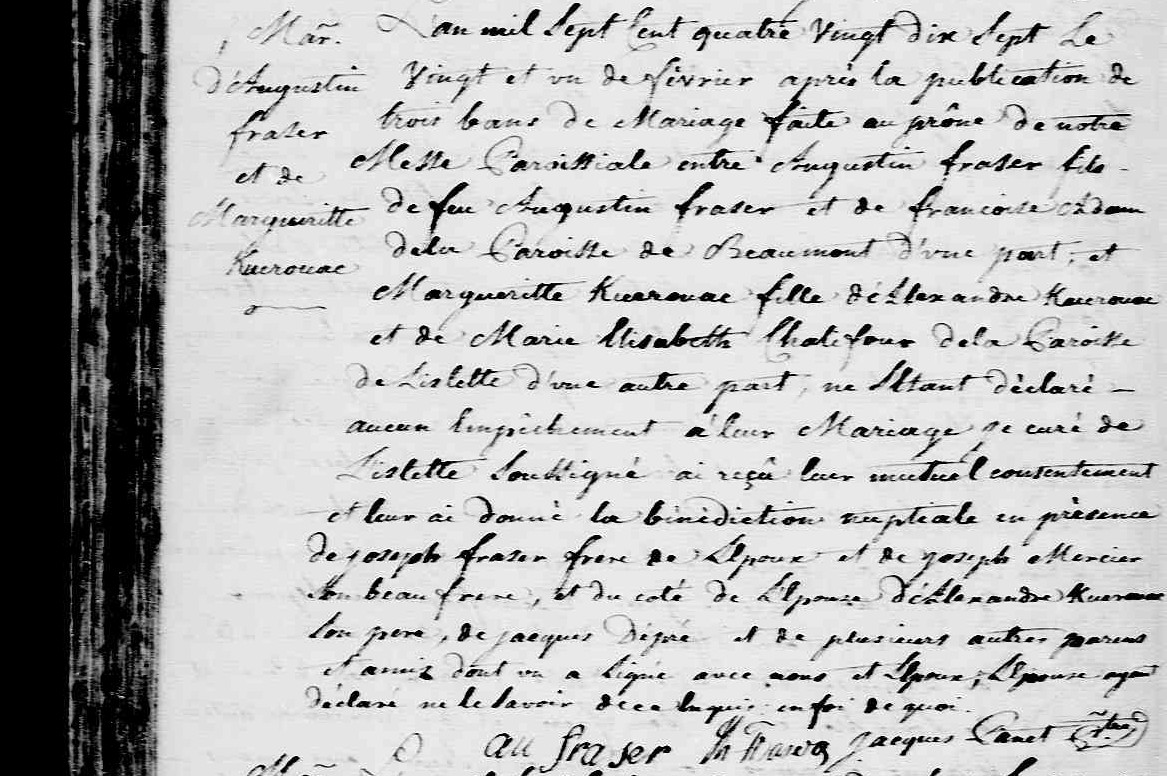 Mar.
D'Augustin
fraser
et de
Margueritte
Kuerouac
L'an mil Sept Cent quatre Vingt dix Sept Le
Vingt et un de fevrier après la publication de
trois bans de Mariage faite au prône de notre
Messe Paroissiale entre Augustin fraser fils
de feu Augustin fraser et de francoise Adam
dela Paroisse de Beaumont d'une part, et
Margueritte Kuerouac fille d'Alexandre Kuerouac
et de Marie Elisabeth Chalifour dela Paroisse
de Lislette d'une autre part, ne S'Etant déclaré
aucun Empêchement à leur Mariage je curé de
Lislette Soussigné ai reçû leur mutuel consentement
et leur ai donné la bénédiction nuptiale en présence
de joseph fraser frere de L'Epoux et de joseph Mercier
Son beau frere, et du coté de L'Epouse d'Alexandre Kuerouac
Son pere, de jacques Dépré et de plusieurs autres parens
et amis dont un a Signé avec nous et L'Epoux, L'Epouse ayant
déclaré ne le Savoir de ce Enquis en foi de quoi.
au fraser Jh fraser Jacques Panet Ptre